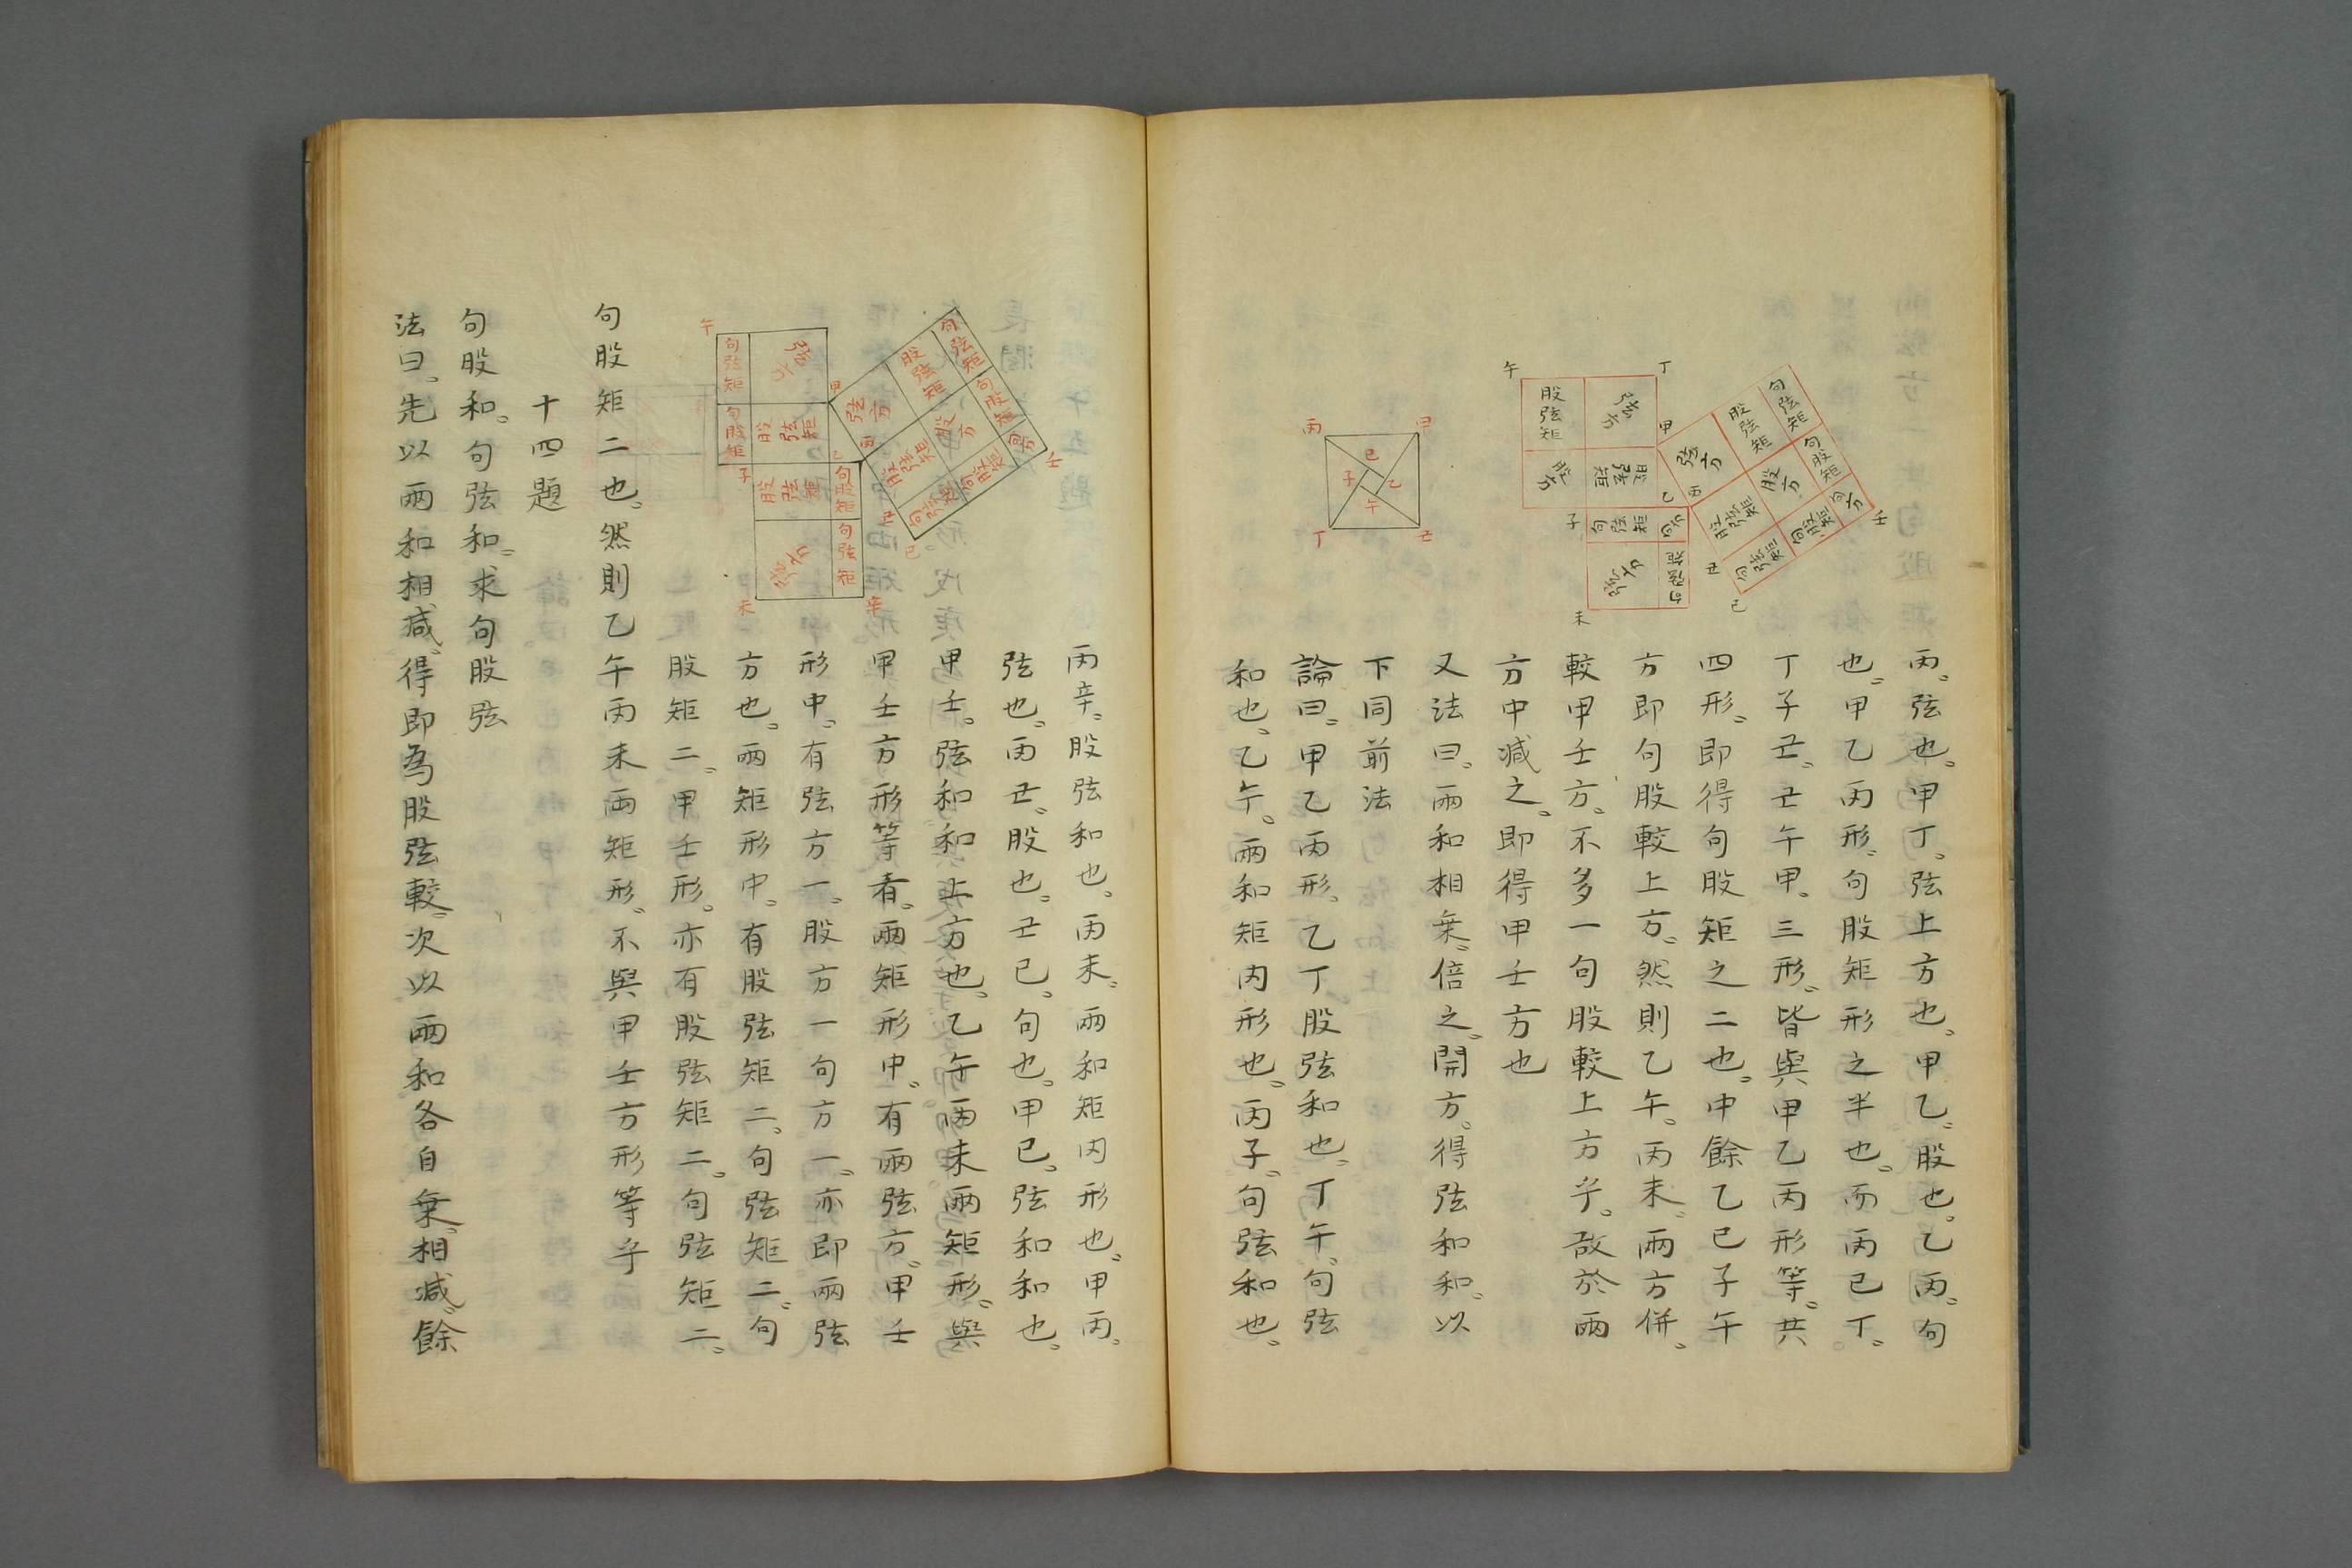 丙。弦也。甲丁。弦上方也。甲乙。股也。乙丙。句
也。甲乙丙形。句股矩形之半也。而丙已丁。
丁子丑。丑午甲。三形。皆與甲乙丙形等。共
四形。即得句股矩之二也。中餘乙已子午
方即句股較上方。然則乙午。丙未。兩方併。
較甲壬方。不多一句股較上方乎。故於兩
方中減之。即得甲壬方也
又法曰。兩和相乗。倍之。開方。得弦和和。以
下同前法
論曰。甲乙丙形。乙丁股弦和也。丁午。句弦
和也。乙午。兩和矩内形也。丙子。句弦和也。
午
丁
股弦矩
弦方
甲
股方
股弦矩
乙
丙
子
句弦矩
句方
弦方
句弦矩
未
弦方
股弦矩
句弦矩
股弦矩
股方
句股矩
句弦矩
句股矩
句方
壬
丑
己
丙
甲
已
子
乙
午
丁
丑
丙辛。股弦和也。丙未。兩和矩内形也。甲丙。
弦也。丙丑。股也。丑已。句也。甲已。弦和和也。
甲壬。弦和和上方也。乙午丙未兩矩形。與
甲壬方形等者。兩矩形中。有兩弦方。甲壬
形中。有弦方一。股方一句方一。亦即兩弦
方也。兩矩形中。有股弦矩二。句弦矩二。句
股矩二。甲壬形。亦有股弦矩二。句弦矩二。
句股矩二也。然則乙午丙未兩矩形。不與甲壬方形等乎
十四題
句股和。句弦和。求句股弦
法曰。先以兩和相減。得即為股弦較。次以兩和各自乗。相減。餘
午
句弦矩
弦方
甲
句股矩
股弦矩
乙
丙
子
股弦矩
句股矩
弦方
句弦矩
未
辛
弦方
股弦矩
句弦矩
股弦矩
股方
句股矩
句弦矩
句股矩
句方
壬
丑
已